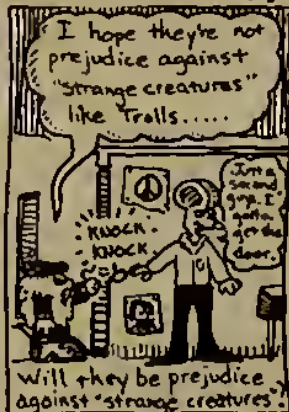 I hope they're not
prejudice against
"strange creatures"
like Trolls.....
KNOCK
KNOCK
Just a
second
guys. I
gotta
get the
door.
Will they be prejudice
against "strange creatures"?